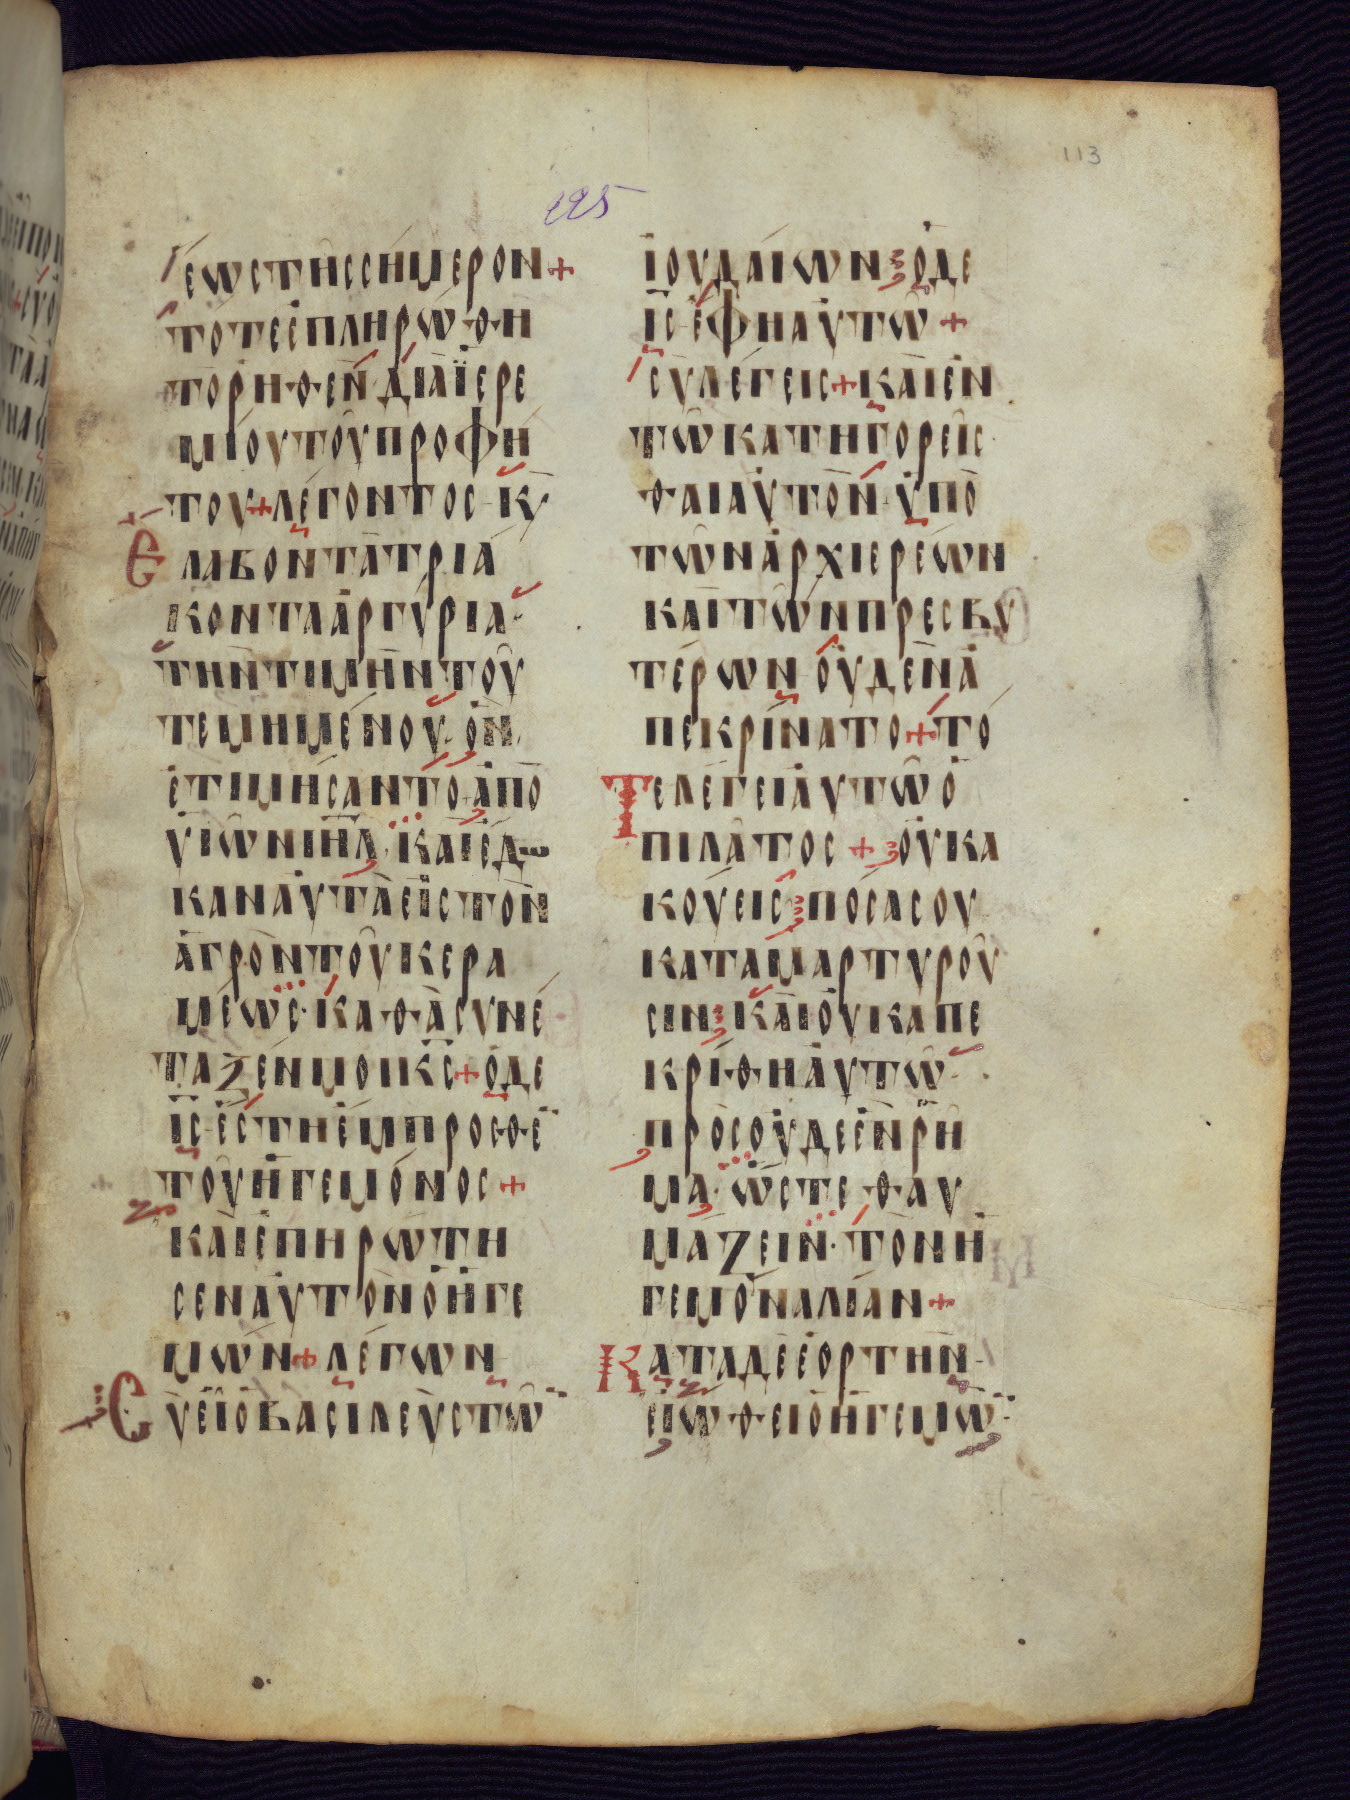 113
225
ἕως τῆς σήμερον +
τότε ἐπληρώθη
τὸ ρηθὲν διὰ ἰερε
μίου τοῦ προφή
του + λέγοντος · κ(αὶ)
ἔλαβον τὰ τριά
κοντα ἀργύρια ·
τὴν τιμὴν τοῦ
τεμημένου · ὃν
ἐτιμήσαντο ἀπὸ
υἱῶν ιηλ · καὶ ἔδω
καν αὐτὰ εἰς τὸν
ἀγρὸν τοῦ κερα
μέως · καθὰ συνέ
ταξέν μοι κς + ὁ δὲ
ις ἔστη ἔμπροσθε
τοῦ ἡγεμόνος +
καὶ ἐπηρώτη
σεν αὐτὸν ὁ ἡγε
μών + λέγων
σὺ εἶ ὁ βασιλεὺς τῶ
ἰουδαίων ὁ δὲ
ις ἔφη αὐτῶ +
σὺ λέγεις + καὶ ἐν
τῶ κατηγορεῖς
θαι αὐτὸν · ὑπὸ
τῶν ἀρχιερέων
καὶ τῶν πρεσβυ
τέρων οὐδὲν ἀ
πεκρίνατο + τό
τε λέγει αὐτῶ ὁ
πιλᾶτος + οὐκ ἀ
κούεις πόσα σου
καταμαρτυροῦ
σιν καὶ οὐκ ἀπε
κρίθη αὐτῶ
πρὸς οὐδὲ ἓν ρῆ
μα · ὥστε θαυ
μάζειν · τὸν ἡ
γεμόνα λίαν +
Κατὰ δὲ ἑορτὴν
εἰώθει ὁ ἡγεμὼ